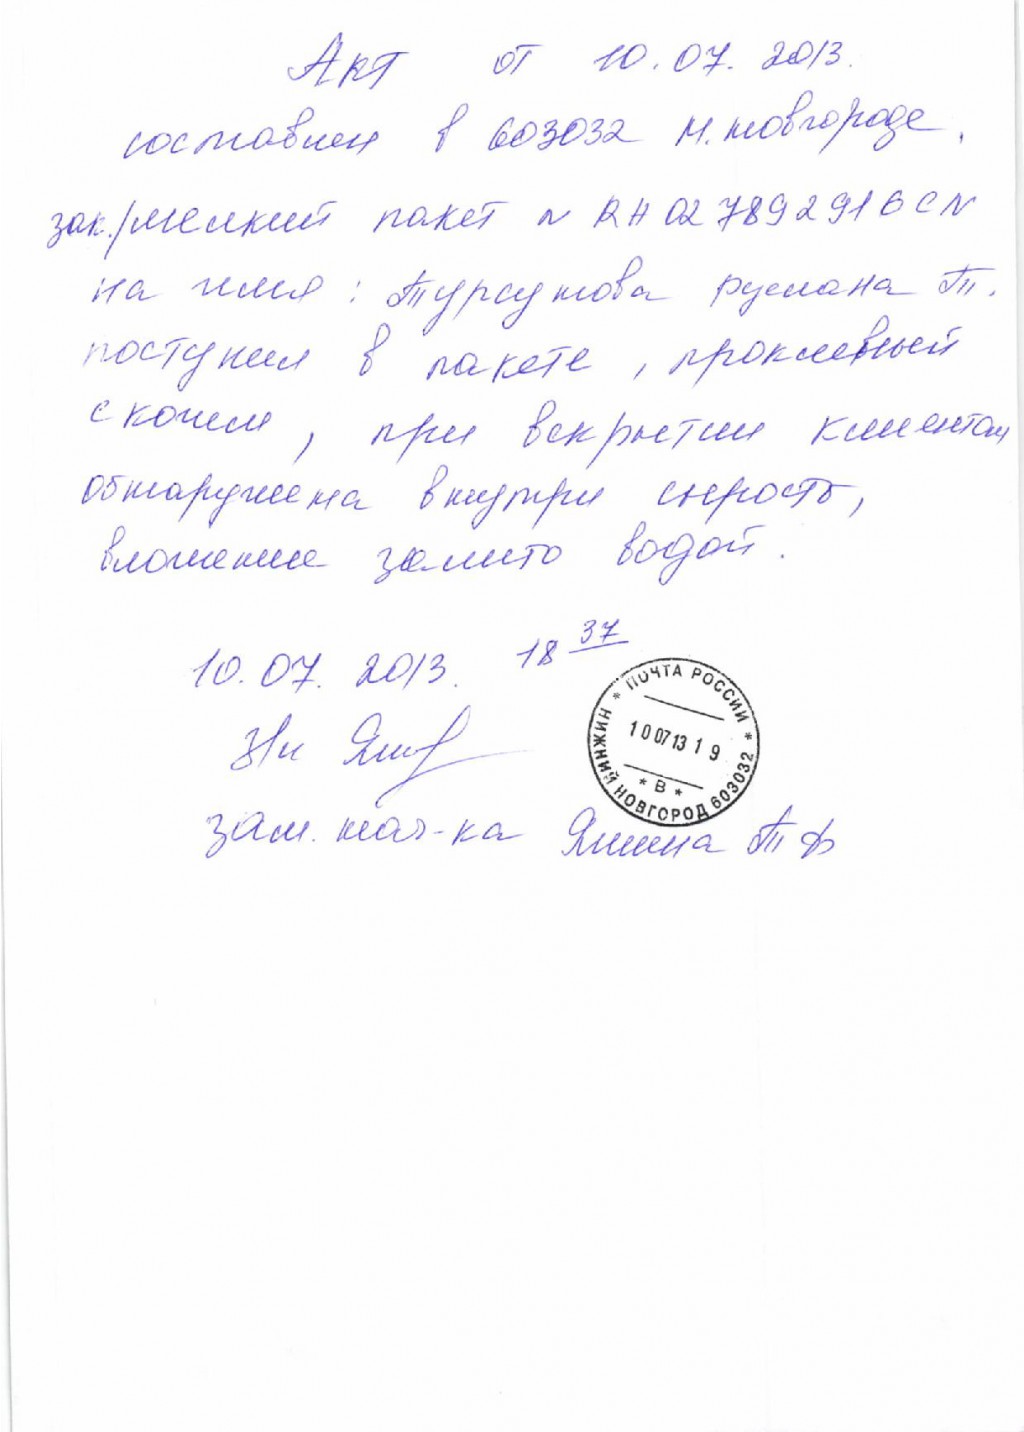 Акт от 10.07.2013.
составлен в 603032 Н.Новгороде.
зак./мелкий пакет N RH027892916CN
на имя: Турсунова Руслана Т.
поступил в пакете, проклеенный
скочем, при вскрытии клиентом
обнаружена внутри сырость,
вложение залито водой.
10.07.2013. 18 37
ПОЧТА РОССИИ
10 07 13 19
* В *
НИЖНИЙ НОВГОРОД 603032
зам. нач-ка Яшина Т Ф